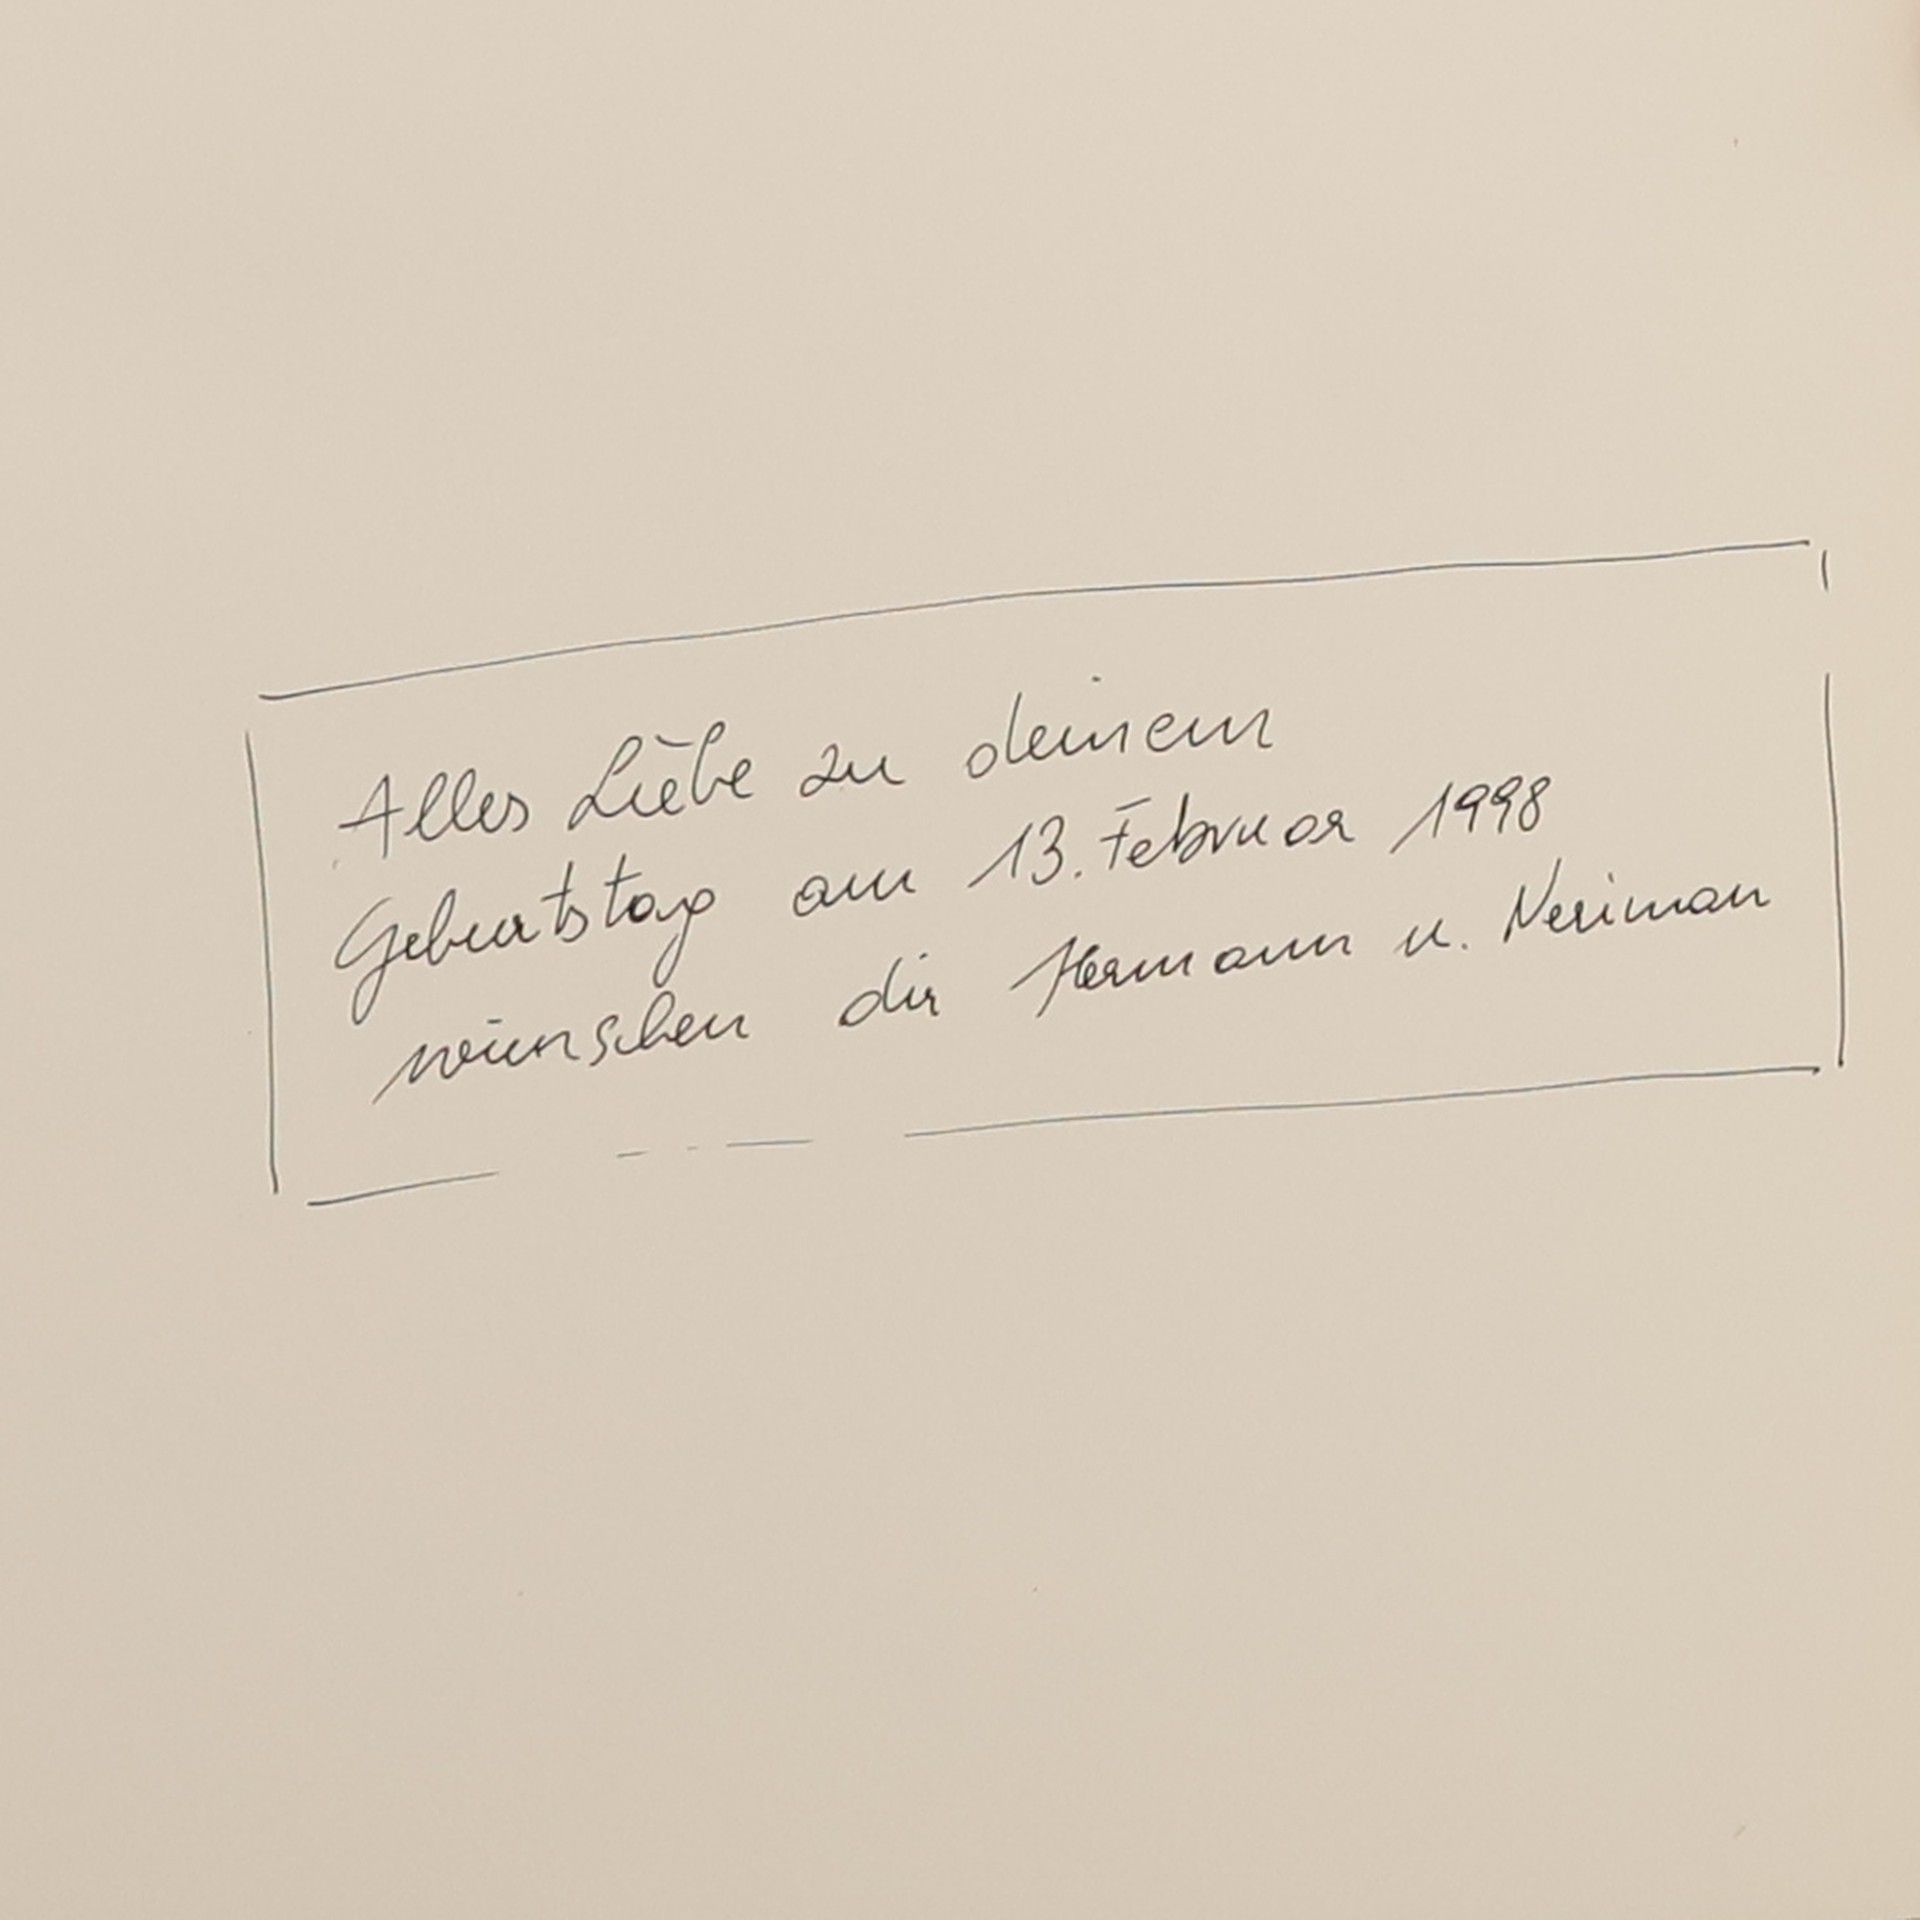 Alles Liebe zu deinem
Geburtstag am 13. Februar 1998
wünschen dir Hermann u. Neriman